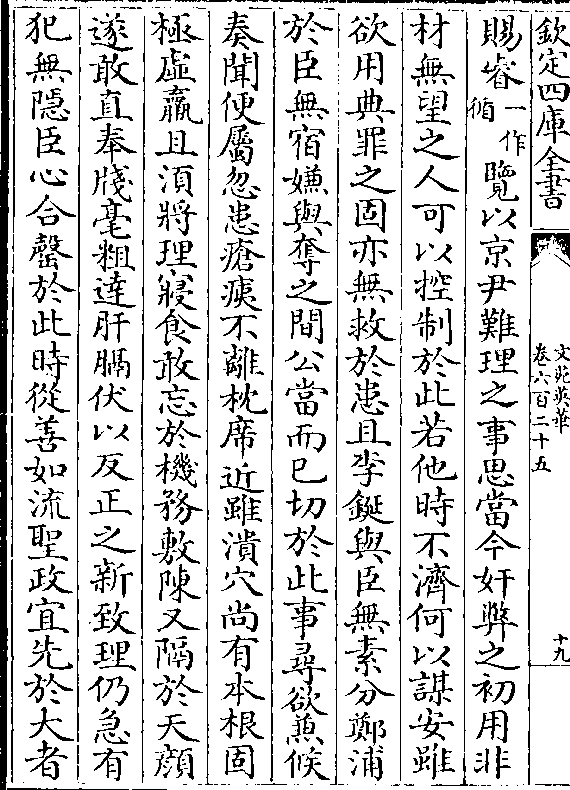 欽定四庫全書
文苑英華
卷六百二十五
十九
賜睿一作循覽以京尹難理之事思當今奸弊之初用非
材無望之人可以控制於此若他時不濟何以謀安雖
欲用典罪之固亦無救於患且李鋋與臣無素分鄭浦
於臣無宿嫌與奪之間公當而已切於此事尋欲𠁅候
奏聞便屬忽患瘡痍不離枕席近雖潰穴尚有本根固
極虛羸且湏將理寢食敢忘於機務敷陳又隔於天顔
遂敢直奉牋毫粗達肝膈伏以反正之新致理仍急有
犯無隱臣心合罄於此時從善如流聖政宜先於大者